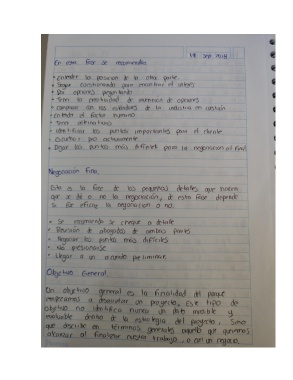 En esta fase se recomienda
18 sep 2014
• entender las posicion de la otra parte.
• Seguir cuestionando para encontrar el interes
• Dar opciones
• Tener la mentalidad de de opciones
• Comparar con los estandares de la industria en cuestion
• entender el factor humano
• Tener alternativas
• identificar los puntos importantes para el cliente
• escuchar pro activamente
• Dejar los puntos más dificiles para la negociacion al final
Negociación Fina.
Esta es la fase de los pequeños detalles que hacen
que se dé o no la negociación, de esta fase depende
si fue eficaz la negociación o no.
• Se recomienda se cheque a detalle
• Revisión de abogados de ambas partes
• Negociar los puntos más dificiles
• No presionarse
• Llegar a un acuerdo preliminar
Objetivo General
Un objetivo general es la finalidad del
empezamos a desarrollar un proyecto. Este tipo de
objetivo no identifica nunca un dato medible y
evaluable dentro de la estrategia del proyecto, Sino
que describe en términos generales aquello que queremos
alcanzar al finalizar nuestro trabajo, o en un negocio.